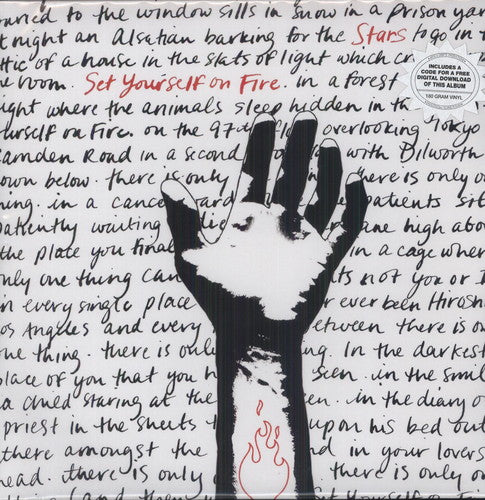 turned to the window sills in snow in a prison yar
t night an Alsatian barking for the Stars to go in t
ttic of a house in the slats of light which cr
he room. Set Yourself on Fire. in a forest
ight where the animals sleep hidden in th
urself on Fire. on the 97th fl overlooking Tokyo
camden Road in a second with Dilworth
own below. there is only there is only o
hing. in a cance ward patients sit
patiently waiting die ane high abo
the place you final in a cage wher
nly one thing can ts not you or I
in every single place r ever been Hirosh
os Angeles and every etween there is on
ne thing. there is onl ng. In the darkest
place of you that you h seen. in the smil
a child staring at the en. in the diary o
priest in the sheets t upon his bed out
there amongst the d in your lovers
head. there is only there is only o
INCLUDES A
CODE FOR A FREE
DIGITAL DOWNLOAD
OF THIS ALBUM
180 GRAM VINYL